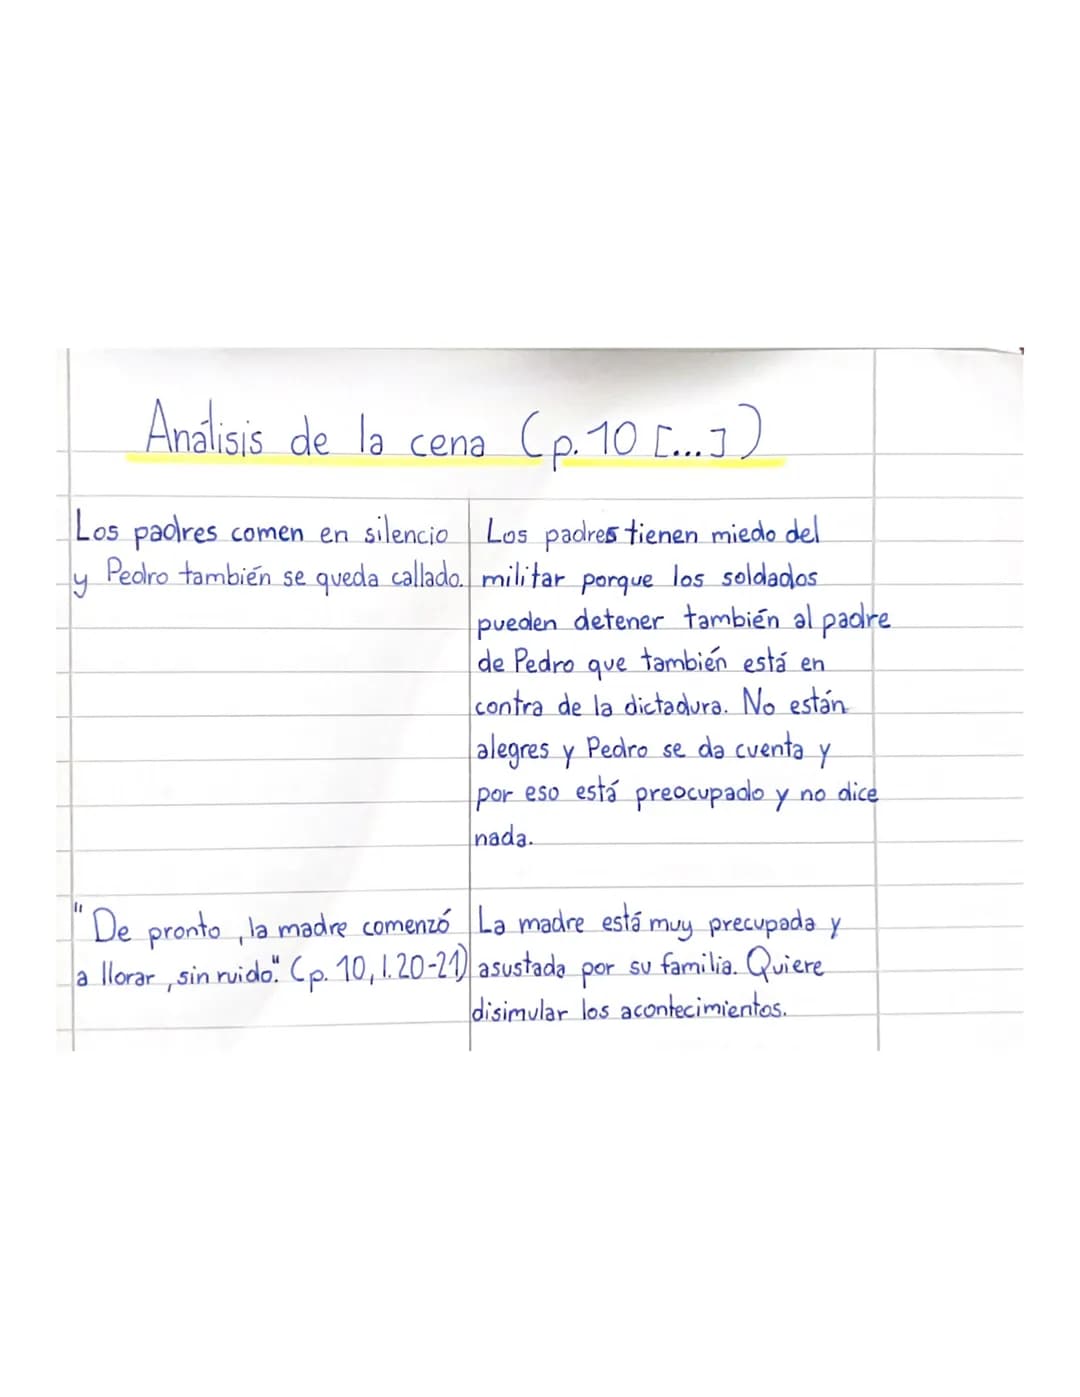 Análisis de la cena (p. 10 [...])
Los padres comen en silencio
y Pedro también se queda callado.
Los padres tienen miedo del
militar porque los soldados
pueden detener también al padre
de Pedro que también está en
contra de la dictadura. No están
alegres y Pedro se da cuenta y
por eso está preocupado y no dice
nada.
"De pronto, la madre comenzó
a llorar, sin ruido." (p. 10, l. 20-21)
La madre está muy precupada y
asustada por su familia. Quiere
disimular los acontecimientos.